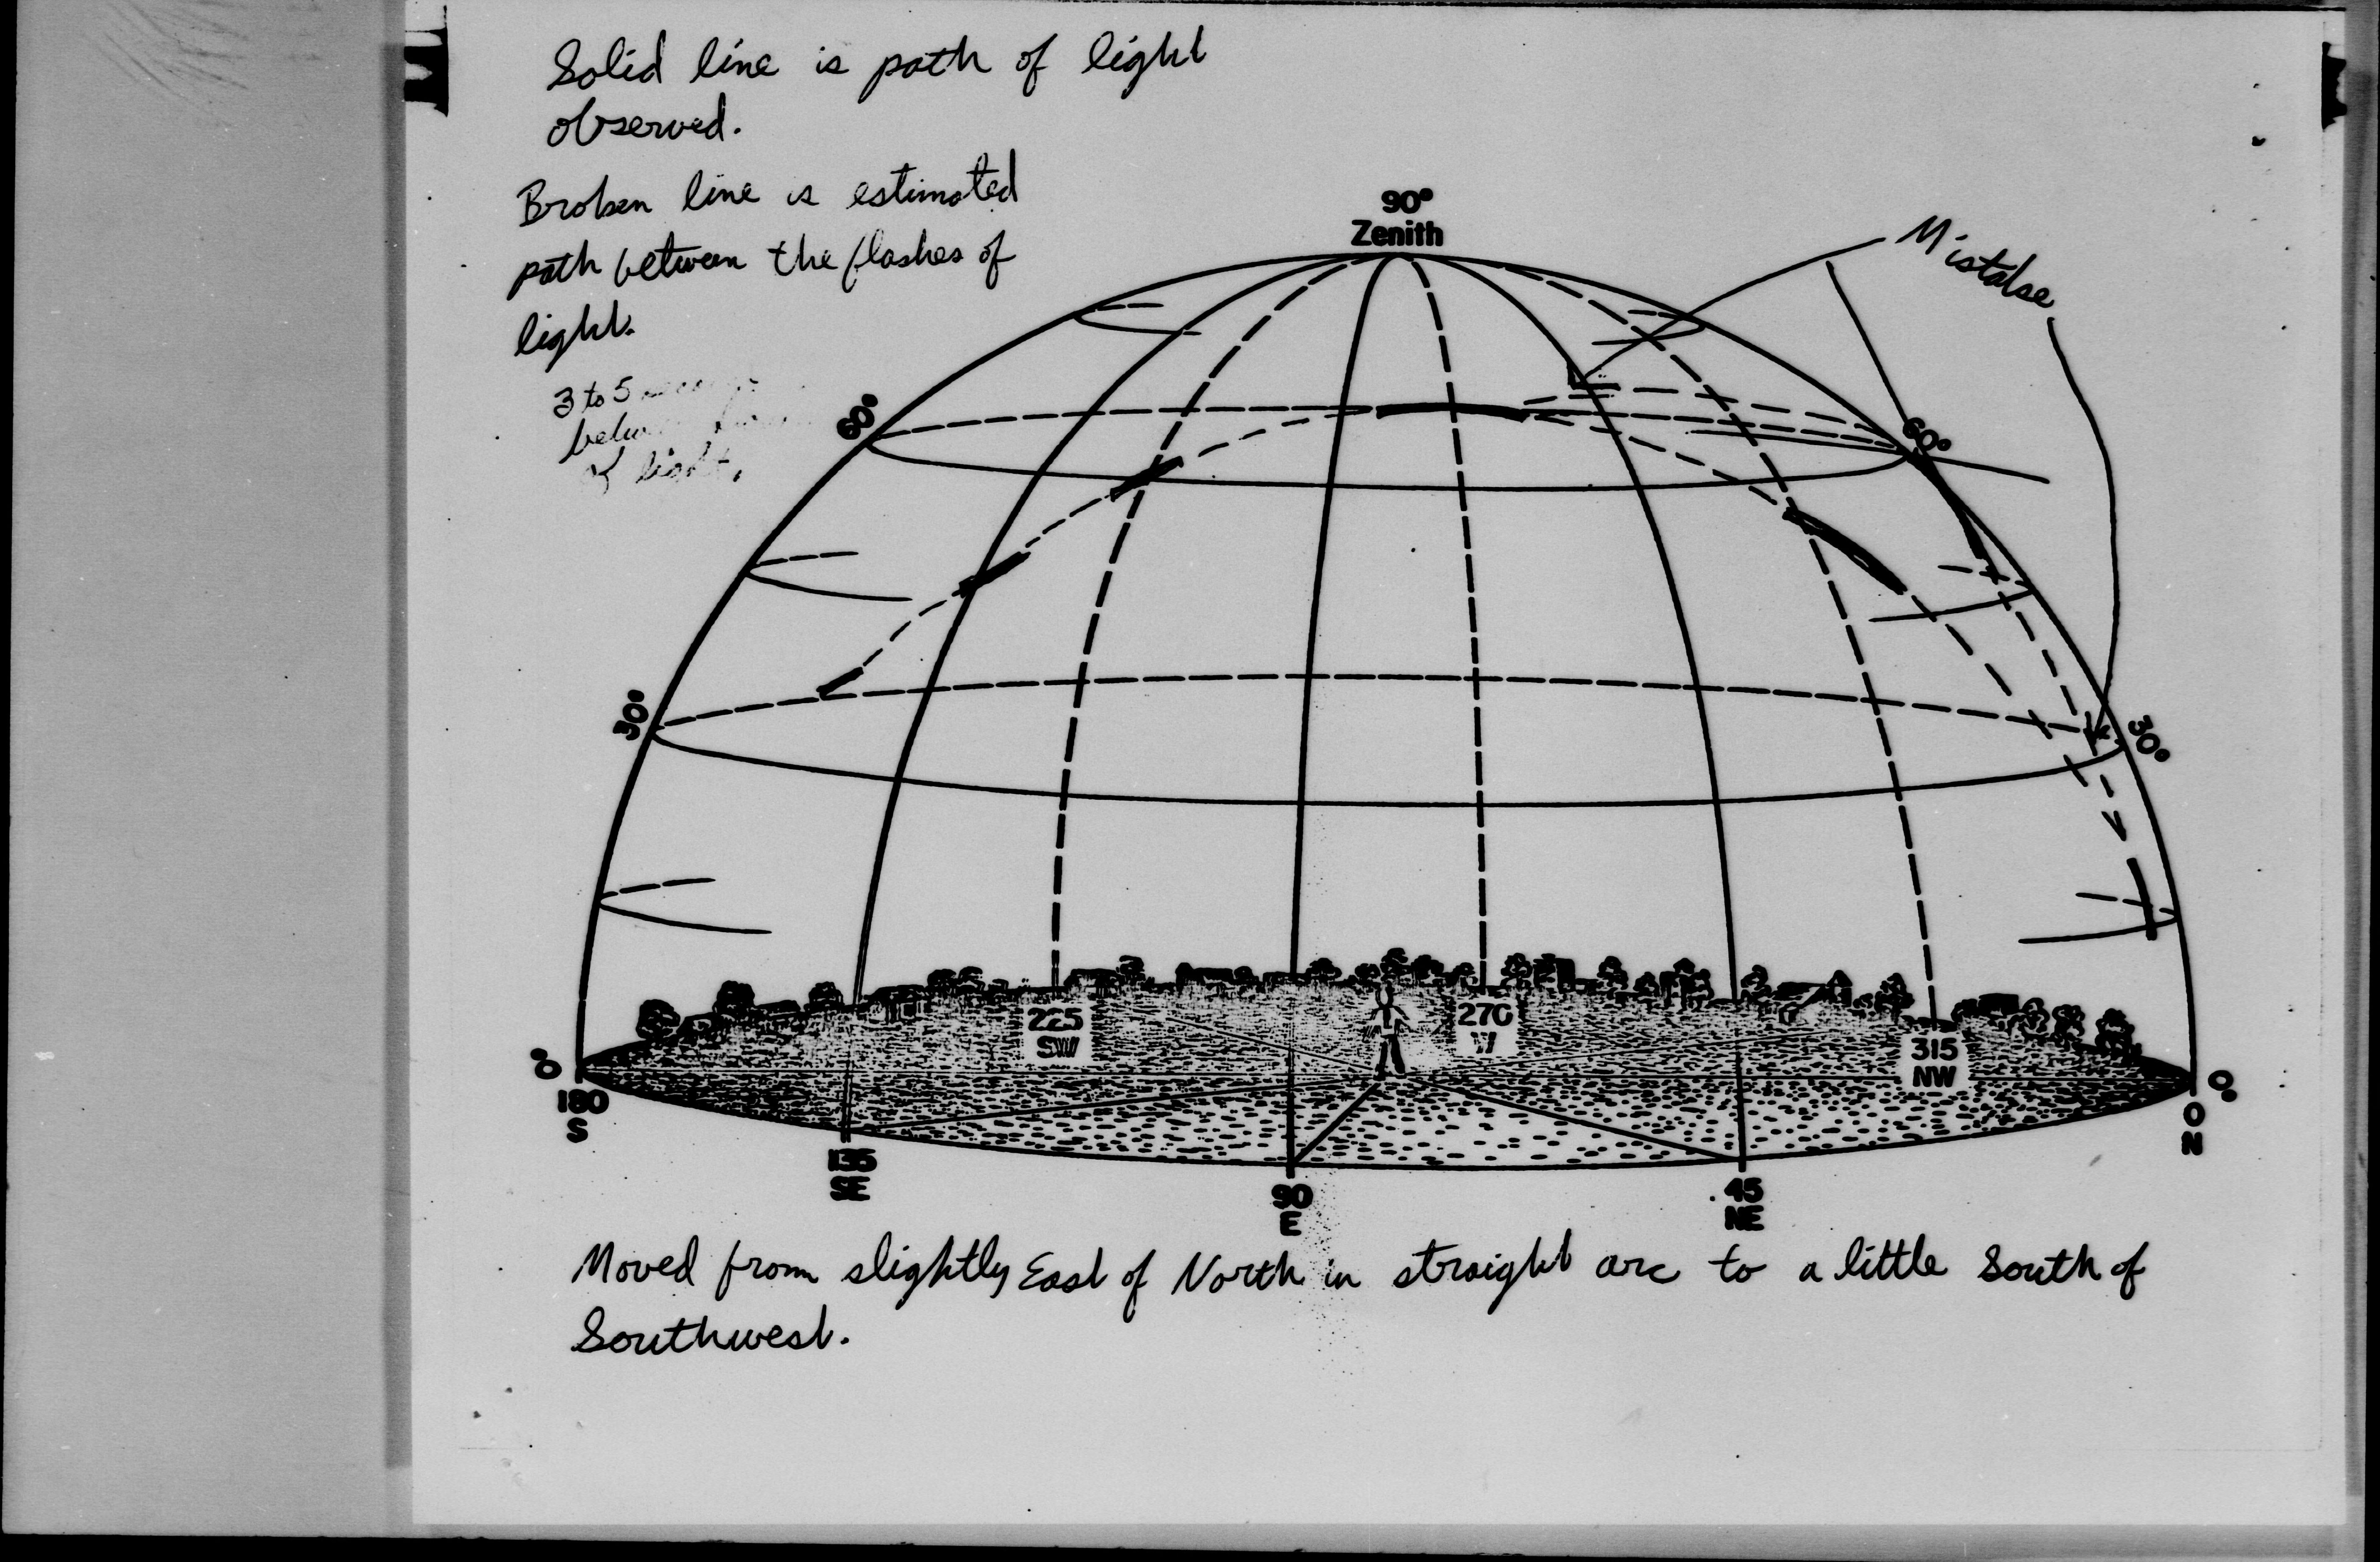 Solid line is path of light
observed.
Broken line is estimated
path between the flashes of
light.
3 to 5
of light.
90°
Zenith
Mistake
60°
60°
30°
30°
225
SW
270
W
315
NW
0°
180
S
0°
0
N
135
SE
90
E
45
NE
Moved from slightly East of North in straight arc to a little South of
Southwest.